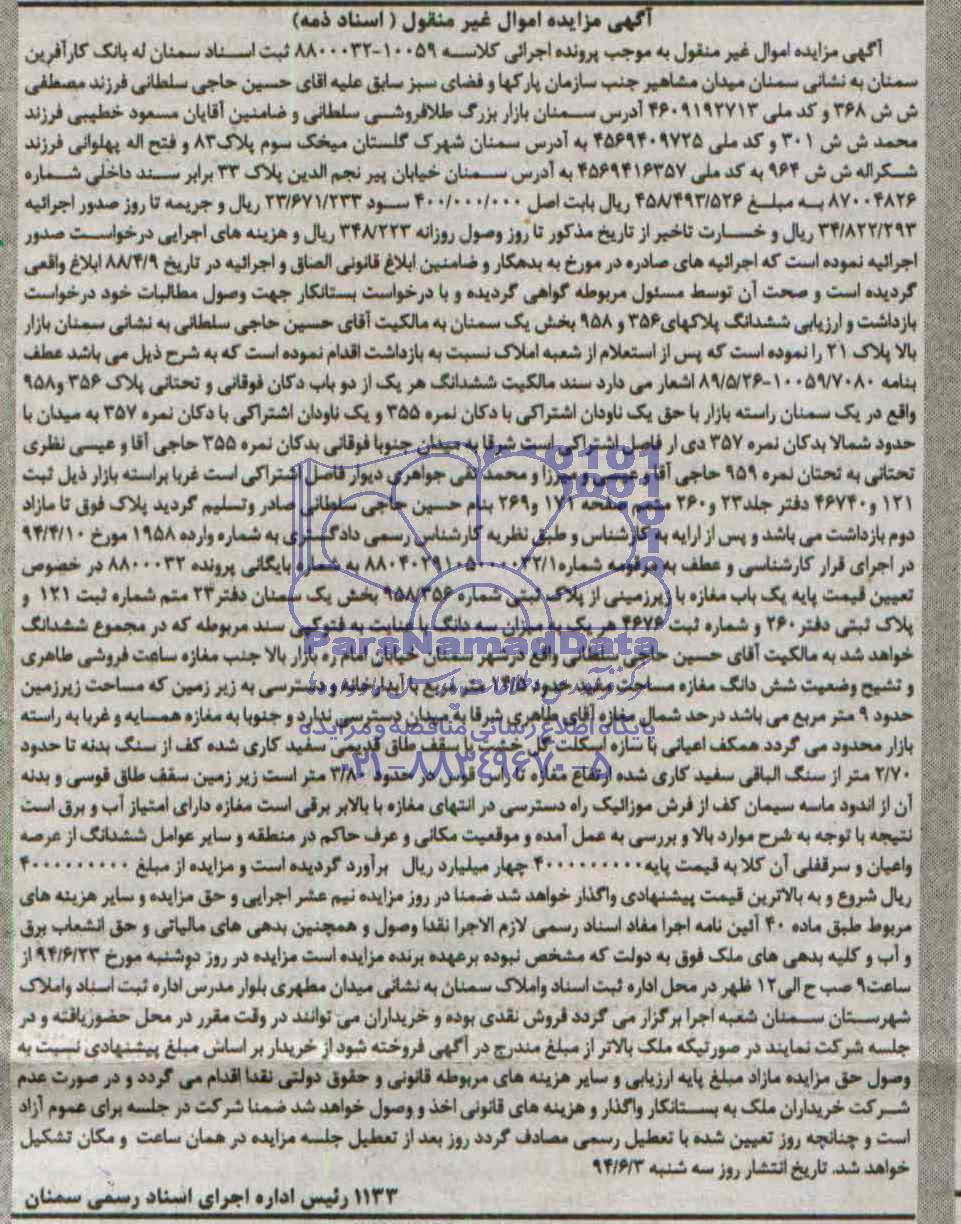 آگهی مزایده اموال غیر منقول ( اسناد ذمه)
آگهی مزایده اموال غیر منقول به موجب پرونده اجرائی کلاسه ۱۰۰۵۹-۸۸۰۰۰۳۲ ثبت اسناد سمنان له بانک کارآفرین
سمنان به نشانی سمنان میدان مشاهیر جنب سازمان پارکها و فضای سبز سابق علیه اقای حسین حاجی سلطانی فرزند مصطفی
ش ش ۳۶۸ و کد ملی ۴۶۰۹۱۹۲۷۱۳ آدرس سمنان بازار بزرگ طلافروشی سلطانی و ضامنین آقایان مسعود خطیبی فرزند
محمد ش ش ۳۰۱ و کد ملی ۴۵۶۹۴۰۹۷۲۵ به آدرس سمنان شهرک گلستان میخک سوم پلاک۸۳ و فتح اله پهلوانی فرزند
شکراله ش ش ۹۶۴ به کد ملی ۴۵۶۹۴۱۶۳۵۷ به آدرس سمنان خیابان پیر نجم الدین پلاک ۳۳ برابر سند داخلی شماره
۸۷۰۰۴۸۲۶ به مبلغ ۴۵۸/۴۹۳/۵۲۶ ریال بابت اصل ۴۰۰/۰۰۰/۰۰۰ سود ۲۳/۶۷۱/۲۳۳ ریال و جریمه تا روز صدور اجرائیه
۳۴/۸۲۲/۲۹۳ ریال و خسارت تاخیر از تاریخ مذکور تا روز وصول روزانه ۳۴۸/۲۲۳ ریال و هزینه های اجرایی درخواست صدور
اجرائیه نموده است که اجرائیه های صادره در مورخ به بدهکار و ضامنین ابلاغ قانونی الصاق و اجرائیه در تاریخ ۸۸/۴/۹ ابلاغ واقعی
گردیده است و صحت آن توسط مسئول مربوطه گواهی گردیده و با درخواست بستانکار جهت وصول مطالبات خود درخواست
بازداشت و ارزیابی ششدانگ پلاکهای۳۵۶ و ۹۵۸ بخش یک سمنان به مالکیت آقای حسین حاجی سلطانی به نشانی سمنان بازار
بالا پلاک ۲۱ را نموده است که پس از استعلام از شعبه املاک نسبت به بازداشت اقدام نموده است که به شرح ذیل می باشد عطف
بنامه ۱۰۰۵۹/۷۰۸۰-۸۹/۵/۲۶ اشعار می دارد سند مالکیت ششدانگ هر یک از دو باب دکان فوقانی و تحتانی پلاک ۳۵۶ و۹۵۸
واقع در یک سمنان راسته بازار با حق یک ناودان اشتراکی با دکان نمره ۳۵۵ و یک ناودان اشتراکی با دکان نمره ۳۵۷ به میدان با
حدود شمالا بدکان نمره ۳۵۷ دی ار فاصل اشتراکی است شرقا به میدان جنوبا فوقانی بدکان نمره ۳۵۵ حاجی آقا و عیسی نظری
تحتانی به تحتان نمره ۹۵۹ حاجی آقا و عیسی و میرزا و محمد تقی جواهری دیوار فاصل اشتراکی است غربا براسته بازار ذیل ثبت
۱۲۱ و۴۶۷۴۰ دفتر جلد۲۳ و۲۶۰ متمم صفحه ۱۷۱ و۲۶۹ بنام حسین حاجی سلطانی صادر وتسلیم گردید پلاک فوق تا مازاد
دوم بازداشت می باشد و پس از ارایه به کارشناس و طبق نظریه کارشناس رسمی دادگستری به شماره وارده ۱۹۵۸ مورخ ۹۴/۴/۱۰
در اجرای قرار کارشناسی و عطف به مرقومه شماره ۸۸۰۴۰۲۹۱۰۵۰۰۰۰۳۲/۱ به شماره بایگانی پرونده ۸۸۰۰۰۳۲ در خصوص
تعیین قیمت پایه یک باب مغازه با زیرزمینی از پلاک ثبتی شماره ۹۵۸/۳۵۶ بخش یک سمنان دفتر۲۳ متم شماره ثبت ۱۲۱ و
پلاک ثبتی دفتر ۲۶۰ و شماره ثبت ۴۶۷۶ هر یک به میزان سه دانگ با عنایت به فتوکپی سند مربوطه که در مجموع ششدانگ
خواهد شد به مالکیت آقای حسین حاجی سلطانی واقع درشهر سمنان خیابان امام ره بازار بالا جنب مغازه ساعت فروشی طاهری
و تشیح وضعیت شش دانگ مغازه مساحت مفید حدود ۱۴/۵ متر مربع با آبدارخانه و دسترسی به زیر زمین که مساحت زیرزمین
حدود ۹ متر مربع می باشد درحد شمال مغازه آقای طاهری شرقا به میدان دسترسی ندارد و جنوبا به مغازه همسایه و غربا به راسته
بازار محدود می گردد همکف اعیانی با سازه اسکلت گل خشت با سقف طاق قدیمی سفید کاری شده کف از سنگ بدنه تا حدود
۲/۷۰ متر از سنگ الباقی سفید کاری شده ارتفاع مغازه تا راس قوس در حدود ۳/۸۰ متر است زیر زمین سقف طاق قوسی و بدنه
آن از اندود ماسه سیمان کف از فرش موزائیک راه دسترسی در انتهای مغازه با بالابر برقی است مغازه دارای امتیاز آب و برق است
نتیجه با توجه به شرح موارد بالا و بررسی به عمل آمده و موقعیت مکانی و عرف حاکم در منطقه و سایر عوامل ششدانگ از عرصه
واعیان و سرقفلی آن کلا به قیمت پایه۴۰۰۰۰۰۰۰۰۰ چهار میلیارد ریال برآورد گردیده است و مزایده از مبلغ ۴۰۰۰۰۰۰۰۰۰
ریال شروع و به بالاترین قیمت پیشنهادی واگذار خواهد شد ضمنا در روز مزایده نیم عشر اجرایی و حق مزایده و سایر هزینه های
مربوط طبق ماده ۴۰ آئین نامه اجرا مفاد اسناد رسمی لازم الاجرا نقدا وصول و همچنین بدهی های مالیاتی و حق انشعاب برق
و آب و کلیه بدهی های ملک فوق به دولت که مشخص نبوده برعهده برنده مزایده است مزایده در روز دوشنبه مورخ ۹۴/۶/۲۳ از
ساعت۹ صب ح الی۱۲ ظهر در محل اداره ثبت اسناد واملاک سمنان به نشانی میدان مطهری بلوار مدرس اداره ثبت اسناد واملاک
شهرستان سمنان شعبه اجرا برگزار می گردد فروش نقدی بوده و خریداران می توانند در وقت مقرر در محل حضوریافته و در
جلسه شرکت نمایند در صورتیکه ملک بالاتر از مبلغ مندرج در آگهی فروخته شود از خریدار بر اساس مبلغ پیشنهادی نسبت به
وصول حق مزایده مازاد مبلغ پایه ارزیابی و سایر هزینه های مربوطه قانونی و حقوق دولتی نقدا اقدام می گردد و در صورت عدم
شرکت خریداران ملک به بستانکار واگذار و هزینه های قانونی اخذ و وصول خواهد شد ضمنا شرکت در جلسه برای عموم آزاد
است و چنانچه روز تعیین شده با تعطیل رسمی مصادف گردد روز بعد از تعطیل جلسه مزایده در همان ساعت و مکان تشکیل
خواهد شد. تاریخ انتشار روز سه شنبه ۹۴/۶/۳
۱۱۳۳ رئیس اداره اجرای اسناد رسمی سمنان
ParaNamadData
پایگاه اطلاع رسانی مناقصه و مزایده
۰۲۱-۸۸۳۴۹۶۷۰-۵